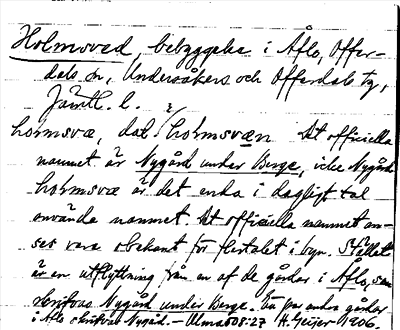 Holmsved, bebyggelse i Åflo, Offer-
dals sn, Undersåkers och Offerdals tg,
Jämtl. l.
hɷrmsvæ, dat. hɷrmsvæn Det officiella
namnet är Nygård under Berge, icke Nygård
hɷrmsvæ är det enda i dagligt tal
använda namnet. Det officiella namnet an-
ses vara obekant för flertalet i byn. Stället
är en utflyttning från en af de gårdar i Åflo, som
skrifvas Nygård under Berge. Två par andra gårdar
i Åflo skrifvas Nygård. — Ulma 608:27 H. Geijer 1906.